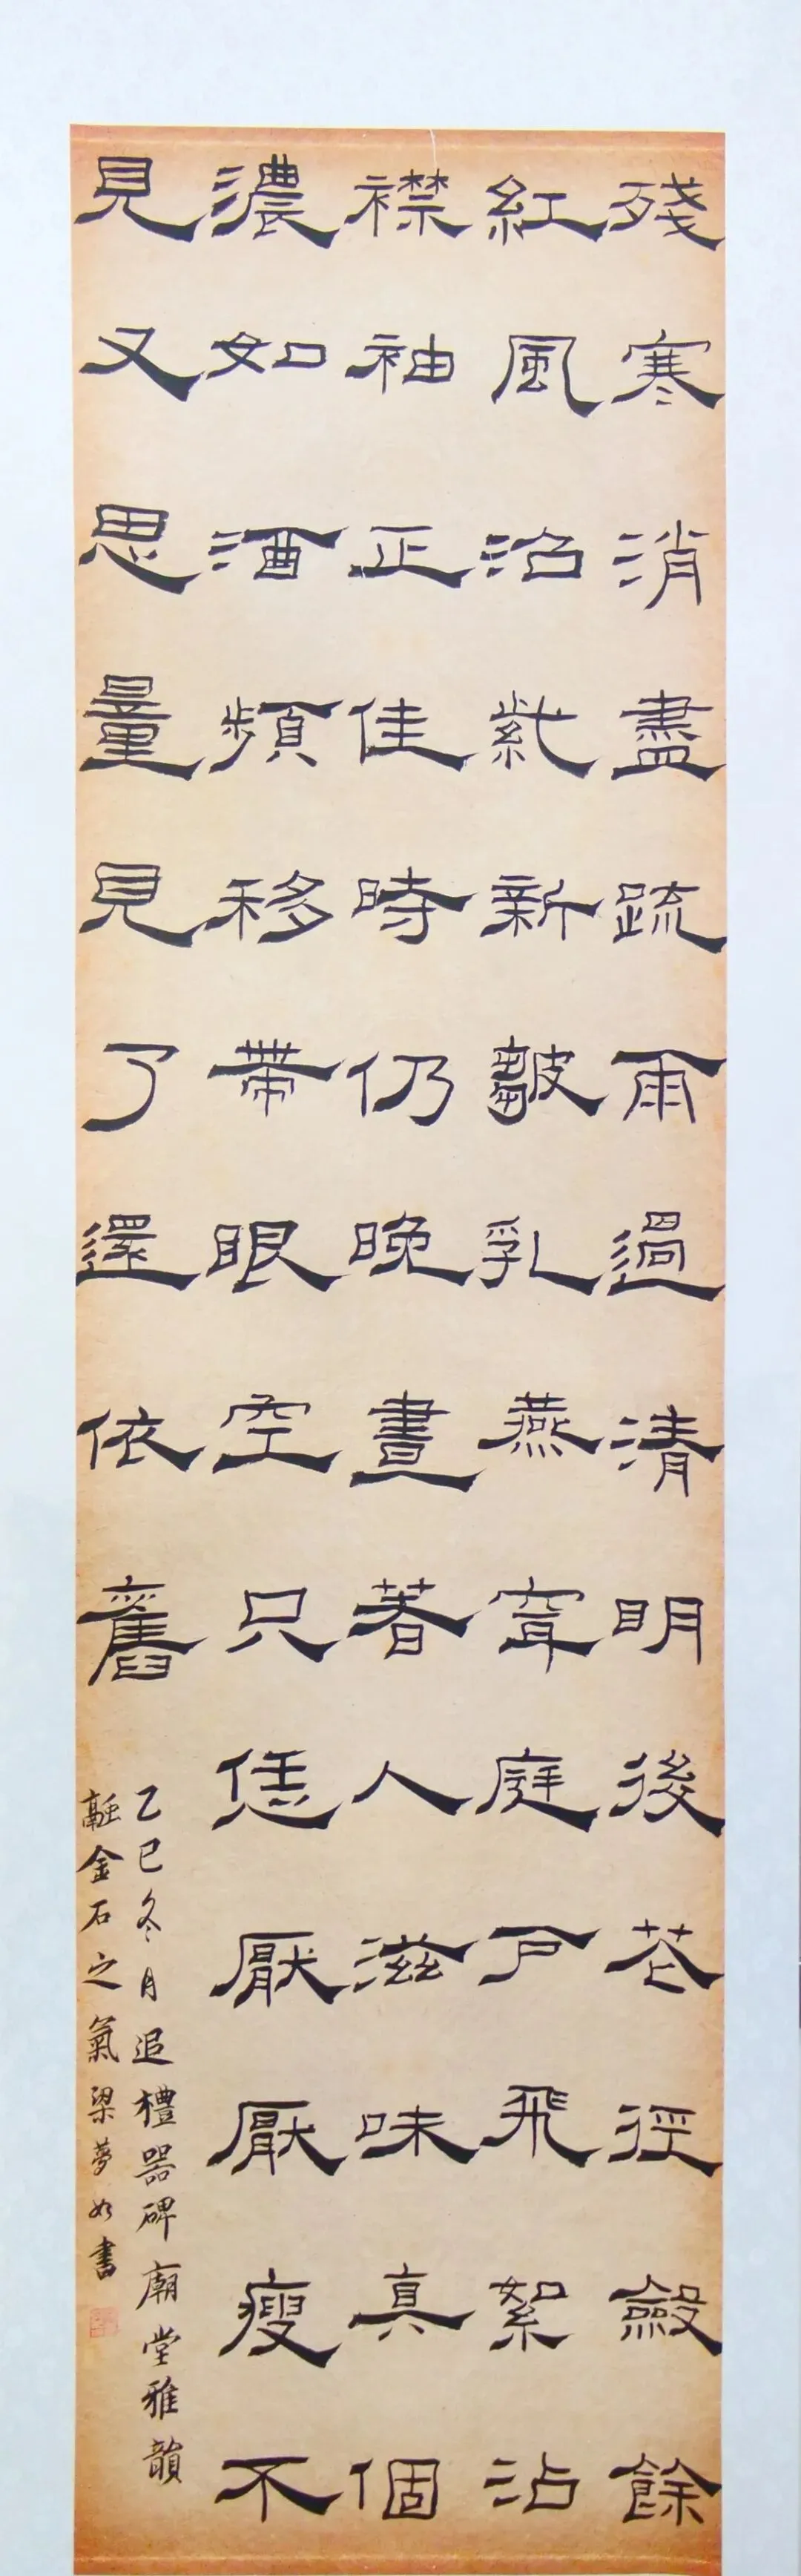 殘寒消盡疏雨過清明後花徑斂餘
紅風沼紫新皺乳燕穿庭戶飛絮沾
襟袖正佳時仍晚晝著人滋味真個
濃如酒頻移帶眼空只恁厭厭瘦不
見又思量見了還依舊
乙巳冬月追禮器碑廟堂雅韻
融金石之氣梁夢如書